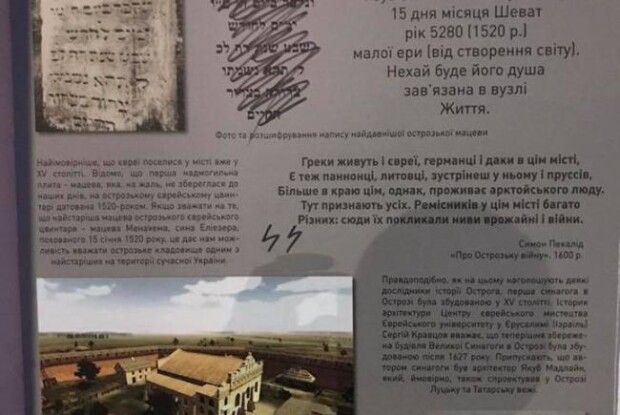 ימים לחודש
שבט שנת
תהא נשמתו
צרורה בצרור
החיים
15 дня місяця Шеват
рік 5280 (1520 р.)
малої ери (від створення світу).
Нехай буде його душа
зав'язана в вузлі
Життя.
Фото та розшифрування напису найдавнішої острозької мацеви
Наймовірніше, що євреї поселися у місті вже у
XV столітті. Відомо, що перша надмогильна
плита - мацева, яка, на жаль, не збереглася до
наших днів, на острозькому єврейському цвин-
тарі датована 1520-роком. Якщо зважати на те,
що найстаріша мацева острозького єврейського
цвинтаря – мацева Менахема, сина Елієзера,
похованого 15 січня 1520 року, це дає нам мож-
ливість вважати острозьке кладовище одним з
найстаріших на території сучасної України.
Греки живуть і євреї, германці і даки в цім місті,
Є теж паннонці, литовці, зустрінеш у ньому і пруссів,
Більше в краю цім, однак, проживає арктойського люду.
Тут признають усіх. Ремісників у цім місті багато
Різних: сюди їх покликали ниви врожайні і війни.
Симон Пекалід
«Про Острозьку війну». 1600 р.
Правдоподібно, як на цьому наголошують деякі
дослідники історії Острога, перша синагога в
Острозі була збудованою у XV столітті. Історик
архітектури Центру єврейського мистецтва
Єврейського університету у Єрусалимі (Ізраїль)
Сергій Кравцов вважає, що теперішня збереже-
на будівля Великої Синагоги в Острозі була збу-
дованою після 1627 року. Припускають, що ав-
тором синагоги був архітектор Якуб Мадлайн,
який, ймовірно, також спроектував у Острозі
Луцьку та Татарську вежі.